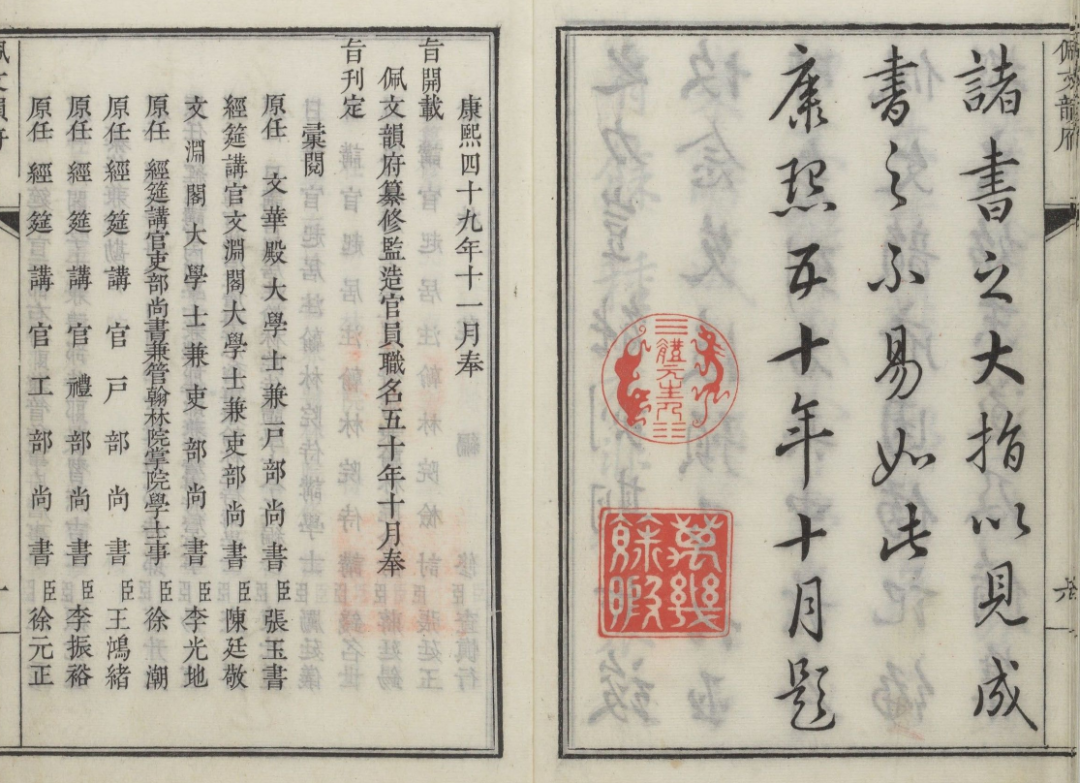 佩文韻府
諸書之大指以見成
書之不易如此
康熙五十年十月題
體元主人
萬幾餘暇
康熙四十九年十一月奉
旨開載
佩文韻府纂修監造官員職名五十年十月奉
旨刊定
彙閱
原任文華殿大學士兼戶部尚書臣張玉書
經筵講官文淵閣大學士兼吏部尚書臣陳廷敬
文淵閣大學士兼吏部尚書臣李光地
原任經筵講官吏部尚書兼管翰林院掌院學士事臣徐潮
原任經筵講官戶部尚書臣王鴻緒
原任經筵講官禮部尚書臣李振裕
原任經筵講官工部尚書臣徐元正
佩文韻府